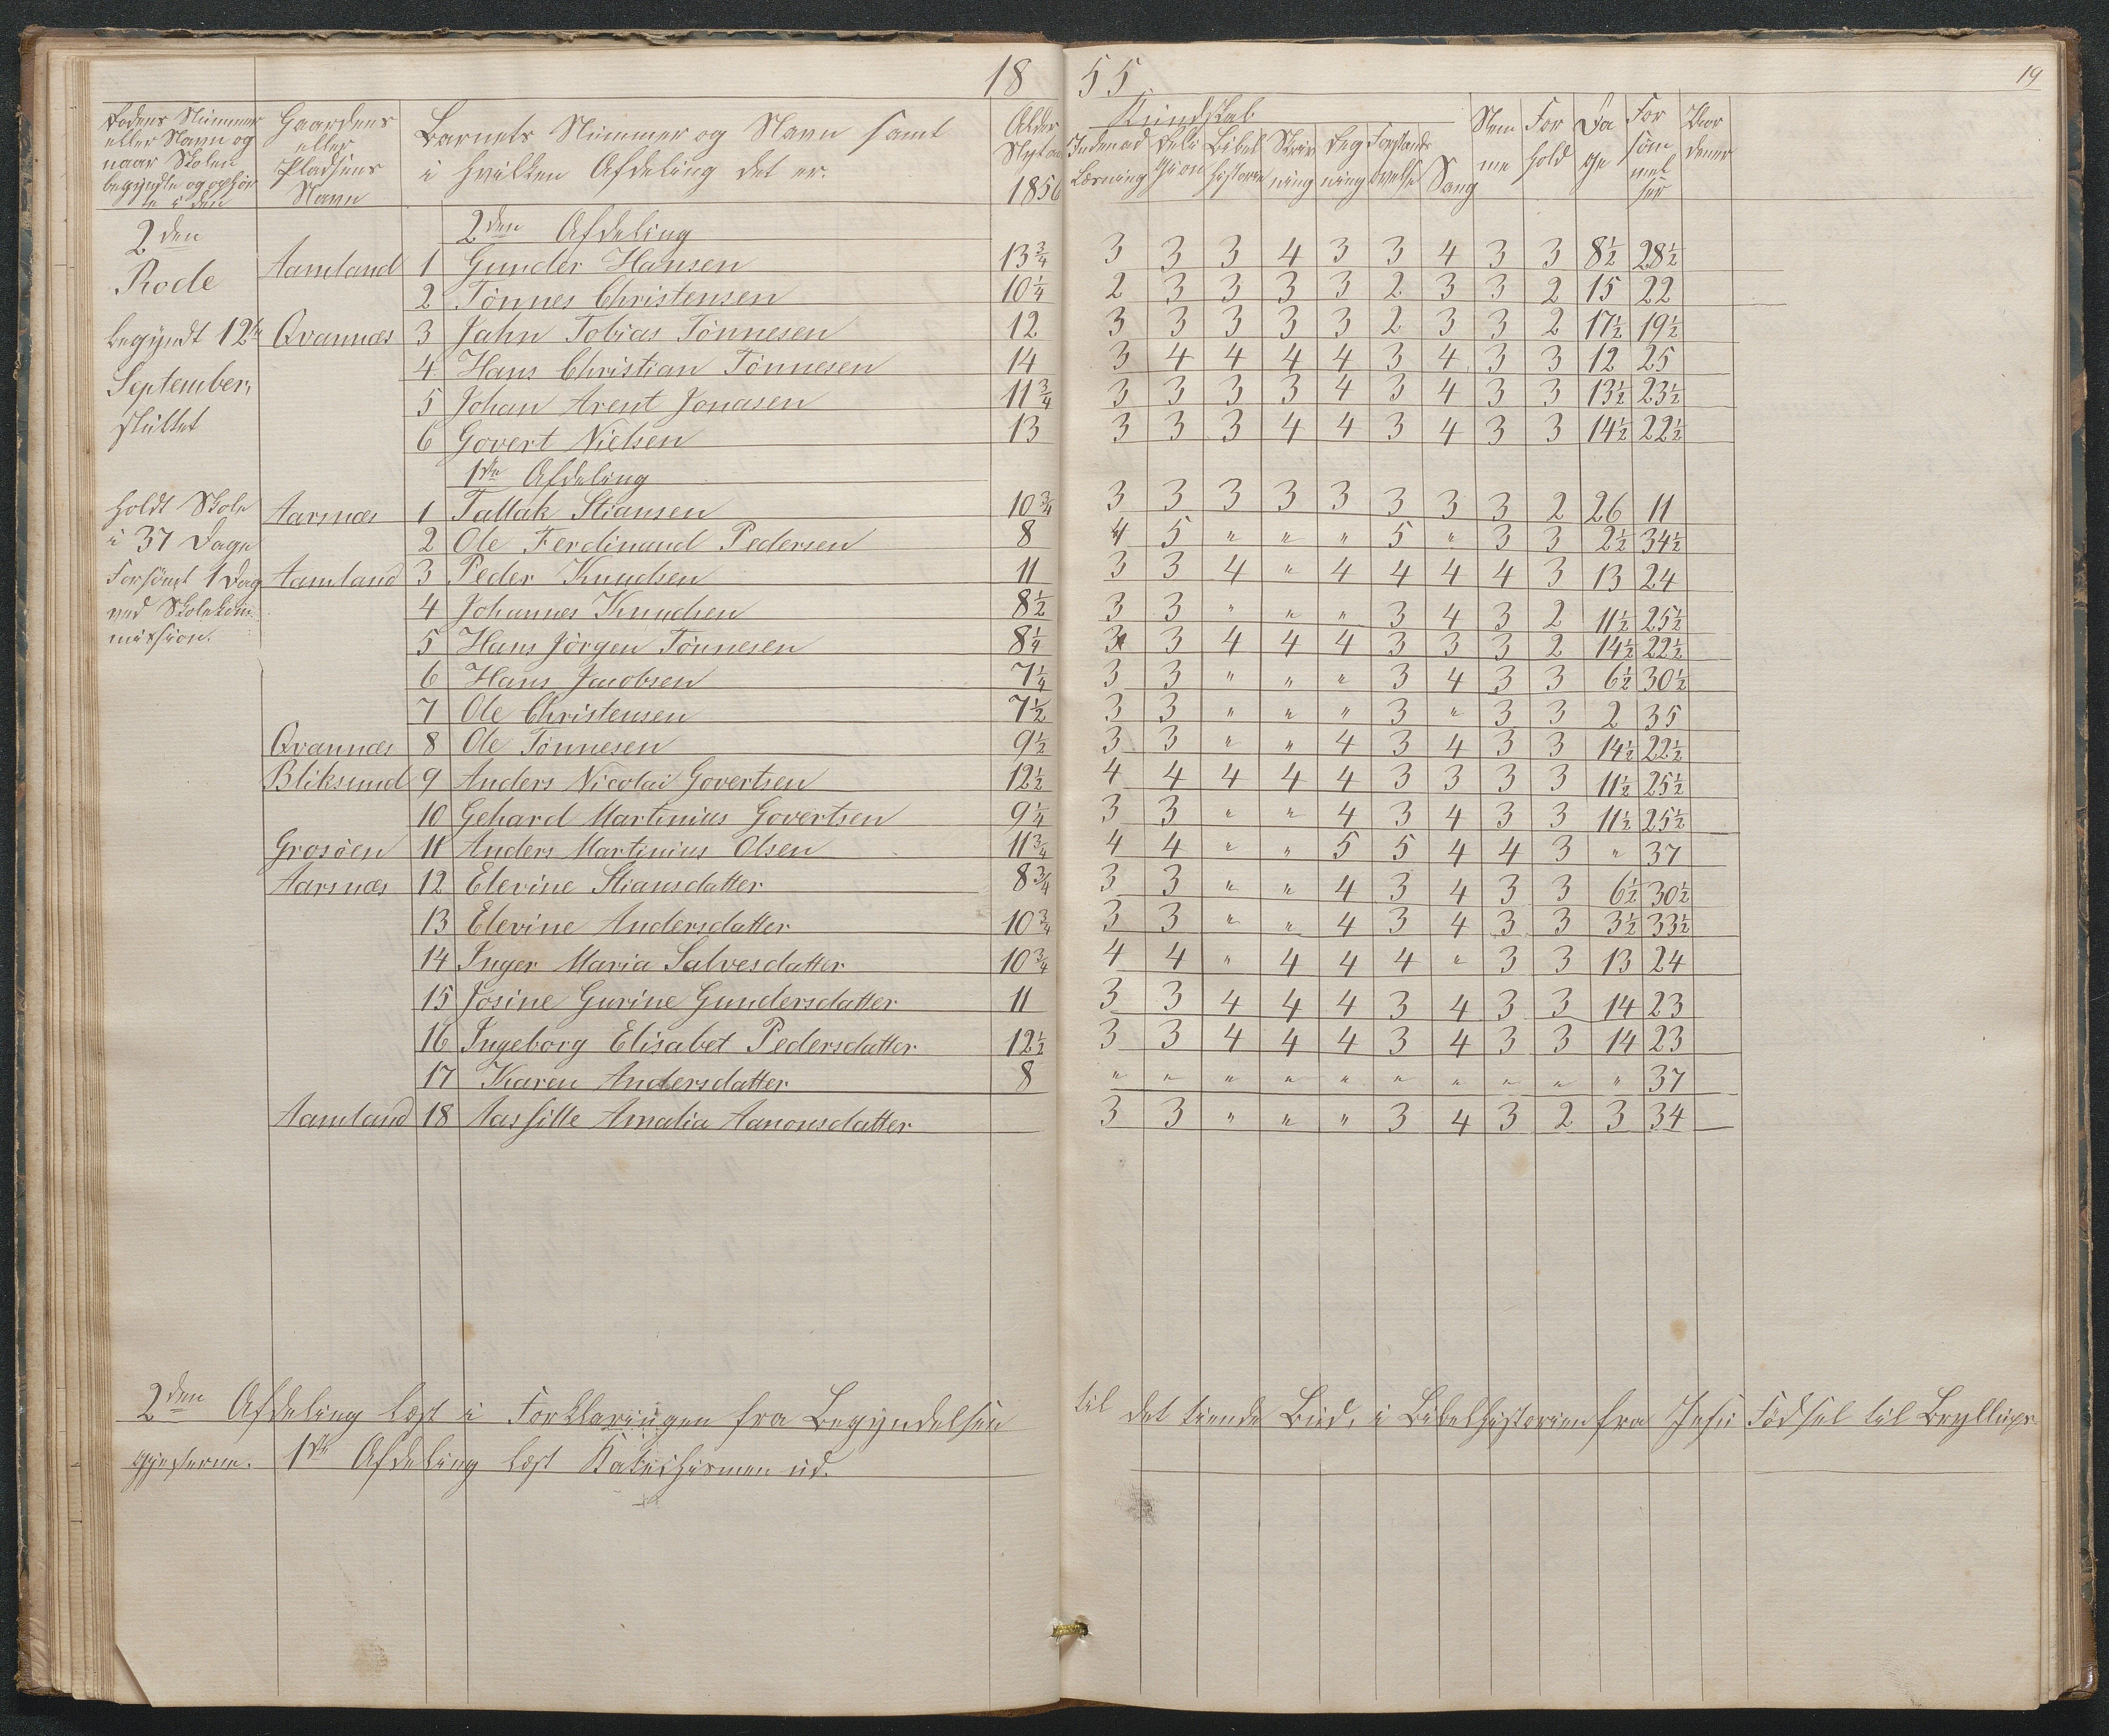 18 55
19
Rodens Nummer eller Navn og naar Skolen begyndte og ophör te i den
Gaardens eller Pladsens Navn
Barnets Nummer og Navn samt i hvilken Afdeling det er.
Alder Nytaar 1856
Kundskab
Indenad Læsning
Reli gion
Bibel historie
Skriv ning
Reg ning
Forstands övelse
Sang
Nem me
For hold
Da ge
For söm mel ser
Vor dener
2den Afdeling
2den Rode
Aamland 1 Gunder Hansen 13 3/4 3 3 3 4 3 3 4 3 3 8 1/2 28 1/2
2 Tönnes Christensen 10 1/4 2 3 3 3 3 2 3 3 2 15 22
begyndt 12te Qvannæs 3 Jahn Tobias Tönnesen 12 3 3 3 3 3 2 3 3 2 17 1/2 19 1/2
September, 4 Hans Christian Tönnesen 14 3 4 4 4 4 3 4 3 3 12 25
5 Johan Arent Jonasen 11 3/4 3 3 3 3 4 3 4 3 3 13 1/2 23 1/2
sluttet 6 Govert Nielsen 13 3 3 3 4 4 3 4 3 3 14 1/2 22 1/2
1ste Afdeling
holdt Skole Aarsnæs 1 Tallak Stiansen 10 3/4 3 3 3 3 3 3 3 3 2 26 11
i 37 Dage 2 Ole Ferdinand Pedersen 8 4 5 " " " 5 " 3 3 2 1/2 34 1/2
Forsömt 1 Dag Aamland 3 Peder Knudsen 11 3 3 4 " 4 4 4 4 3 13 24
ved Skolekom- 4 Johannes Knudsen 8 1/2 3 3 " " " 3 4 3 2 11 1/2 25 1/2
mission. 5 Hans Jörgen Tönnesen 8 1/4 3 3 4 4 4 3 3 3 2 14 1/2 22 1/2
6 Hans Jacobsen 7 1/4 3 3 " " " 3 4 3 3 6 1/2 30 1/2
7 Ole Christensen 7 1/2 3 3 " " " 3 " 3 3 2 35
Qvannæs 8 Ole Tönnesen 9 1/2 3 3 " " 4 3 4 3 3 14 1/2 22 1/2
Bliksund 9 Anders Nicolai Govertsen 12 1/2 4 4 4 4 4 3 3 3 3 11 1/2 25 1/2
10 Gehard Martinius Govertsen 9 1/4 3 3 " " 4 3 4 3 3 11 1/2 25 1/2
Grosöen 11 Anders Martinius Olsen 11 3/4 4 4 " " 5 5 4 4 3 " 37
Aarsnæs 12 Elevine Stiansdatter 8 3/4 3 3 " " 4 3 4 3 3 6 1/2 30 1/2
13 Elevine Andersdatter 10 3/4 3 3 " " 4 3 4 3 3 3 1/2 33 1/2
14 Inger Maria Salvesdatter 10 3/4 4 4 " 4 4 4 " 3 3 13 24
15 Josine Gurine Gundersdatter 11 3 3 4 4 4 3 4 3 3 14 23
16 Ingeborg Elisabet Pedersdatter 12 1/2 3 3 4 4 4 3 4 3 3 14 23
17 Karen Andersdatter 8 " " " " " " " " " " 37
Aamland 18 Aassille Amalia Aanonsdatter 3 3 " " " 3 4 3 2 3 34
2den Afdeling læst i Forklaringen fra Begyndelsen til det tiende Bud, i Bibelhistorien fra Jesu Födsel til Bryllups-
gjesterne. 1ste Afdeling læst Katechismen ud.